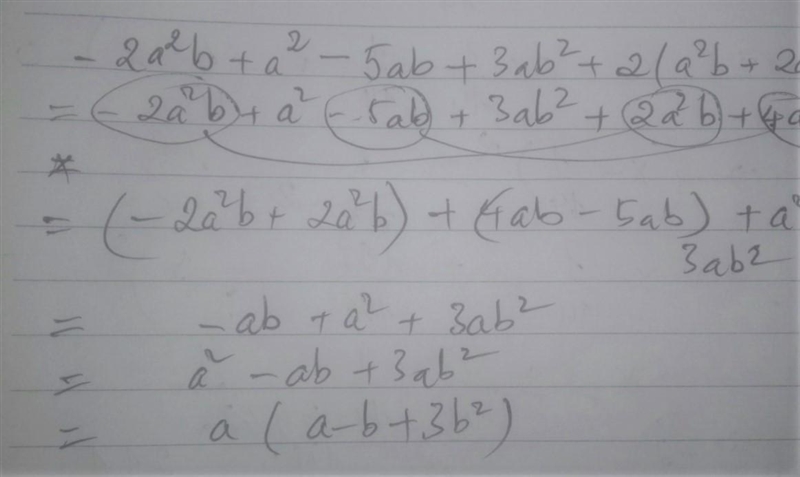 - 2a²b + a² - 5ab + 3ab² + 2(a²b + 2a
= - 2a²b + a² - 5ab + 3ab² + 2a²b + 4a
*
= (- 2a²b + 2a²b) + (4ab - 5ab) + a²
3ab²
= - ab + a² + 3ab²
= a² - ab + 3ab²
= a ( a - b + 3b²)